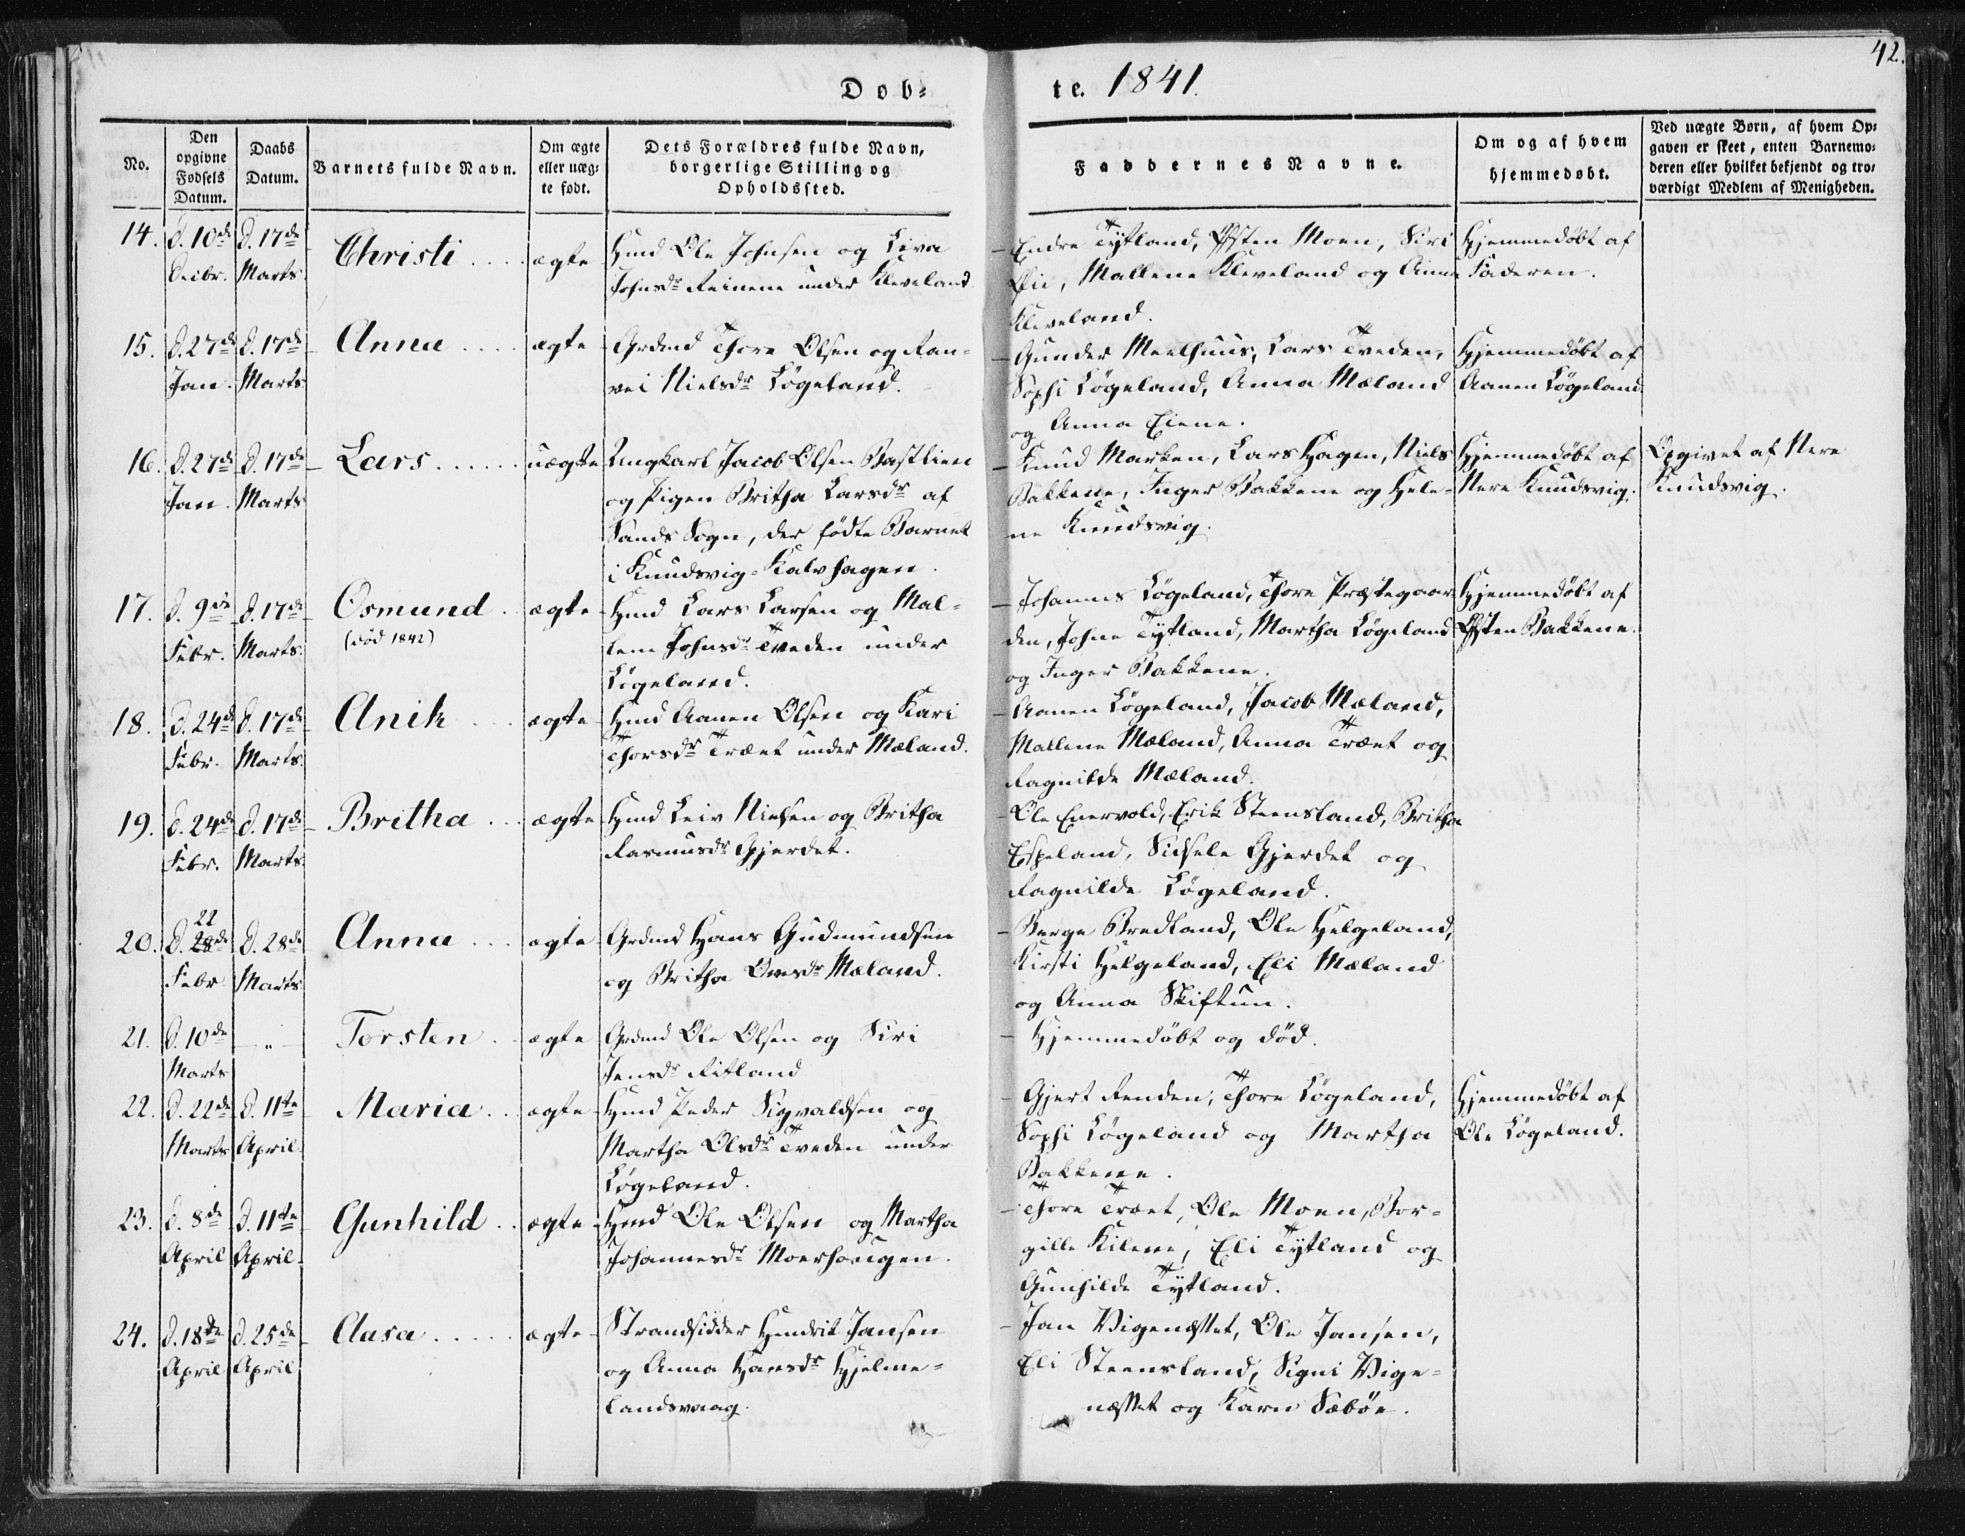 42.
Døb-
te. 1841.
No.
Den opgivne Fødsels Datum.
Daabs Datum.
Barnets fulde Navn.
Om ægte eller uæg- te født.
Dets Forældres fulde Navn, borgerlige Stilling og Opholdssted.
Faddernes Navne.
Om og af hvem hjemmedøbt.
Ved uægte Børn, af hvem Op- gaven er skeet, enten Barnemo- deren eller hvilket bekjendt og tro- værdigt Medlem af Menigheden.
14. d. 10de Decbr. d. 17de Marts Christi .... ægte
Hmd Ole Johnsen og Liva
Johnsdr Reinene under Kleveland
Endre Tytland, Østen Moen, Siri
Øie, Mallene Kleveland og Anna
Kleveland.
Hjemmedøbt af
Faderen.
15. d. 27de Jan. d. 17de Marts Anna .... ægte
Grdmd Thore Olsen og Ran-
vei Nielsdr Løgeland.
Gunder Meelhuus, Lars Tveden,
Sophi Løgeland, Anna Mæland
og Anna Eiene.
Hjemmedøbt af
Aanen Løgeland
16. d. 27de Jan. d. 17de Marts Lars ...... uægte
Ungkarl Jacob Olsen Bastlien
og Pigen Britha Larsdr af
Sands Sogn, der fødte Barnet
i Knudsvig-Kalvhagen.
Knud Marken, Lars Hagen, Niels
Bakkene, Inger Bakkene og Hele-
ne Knudsvig.
Hjemmedøbt af
Nere Knudsvig.
Opgivet af Nere
Knudsvig.
17. d. 9de Febr. d. 17de Marts. Osmund . ægte
(død 1842)
Hmd Lars Larsen og Mal-
lene Johnsdr Tveden under
Løgeland.
Johannes Løgeland, Thore Præstegaar-
den, Johne Tytland, Martha Løgeland
og Inger Bakkene.
Hjemmedøbt af
Østen Bakkene.
18. d. 24de Febr. d. 17de Marts. Anik ... ægte
Hmd Aanen Olsen og Kari
Thorsdr Træet under Mæland.
Aanen Løgeland, Jacob Mæland,
Mallene Mæland, Anna Træet og
Ragnilde Mæland.
19. d. 24de Febr. d. 17de Marts Britha ... ægte
Hmd Leiv Nielsen og Britha
Rasmusdr Gjerdet.
Ole Enervold, Erik Steensland, Britha
Espeland, Sidsele Gjerdet og
Ragnilde Løgeland.
20. 22
d. 28de Febr d. 28de Marts Anna ... ægte
Grdmd Hans Gudmundsen
og Britha Mæland.
Berge Bredland, Ole Helgeland,
Kirsti Helgeland, Eli Mæland
og Anna Skiftun.
21. d. 10de Marts - " - Torsten . ægte
Grdmd Ole Olsen og Siri
Jensdr Ritland
Hjemmedøbt og død.
22. d. 22de Marts d. 11te April Maria .. ægte
Hmd Peder Sigvaldsen og
Martha Olsdr Tveden under
Løgeland.
Gjert Renden, Thore Løgeland,
Sophi Løgeland og Martha
Bakkene.
Hjemmedøbt af
Ole Løgeland.
23. d. 8de April d. 11te April. Gunhild .. ægte
Hmd Ole Olsen og Martha
Johannesdr Moerhougen.
Thore Træet, Ole Moen, Bor-
gille Kilene, Eli Tytland og
Gunhilde Tytland.
24. d. 18de April d. 25de April Aasa ..... ægte
Strandsidder Hendrik Jansen
og Anna Hansdr Hjelme-
landsvaag.
Jan Vigenæsset, Ole Jansen,
Eli Steensland, Signi Vige-
næsset og Karn Sæbøe.